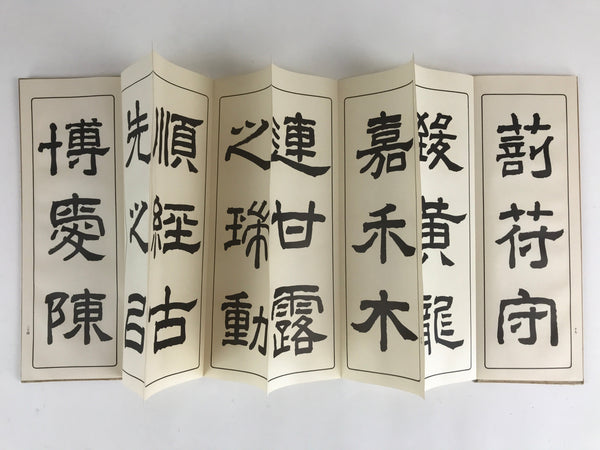 剖苻守
致黃龍
嘉禾木
連甘露
之瑞動
順經古
先之以
博愛陳